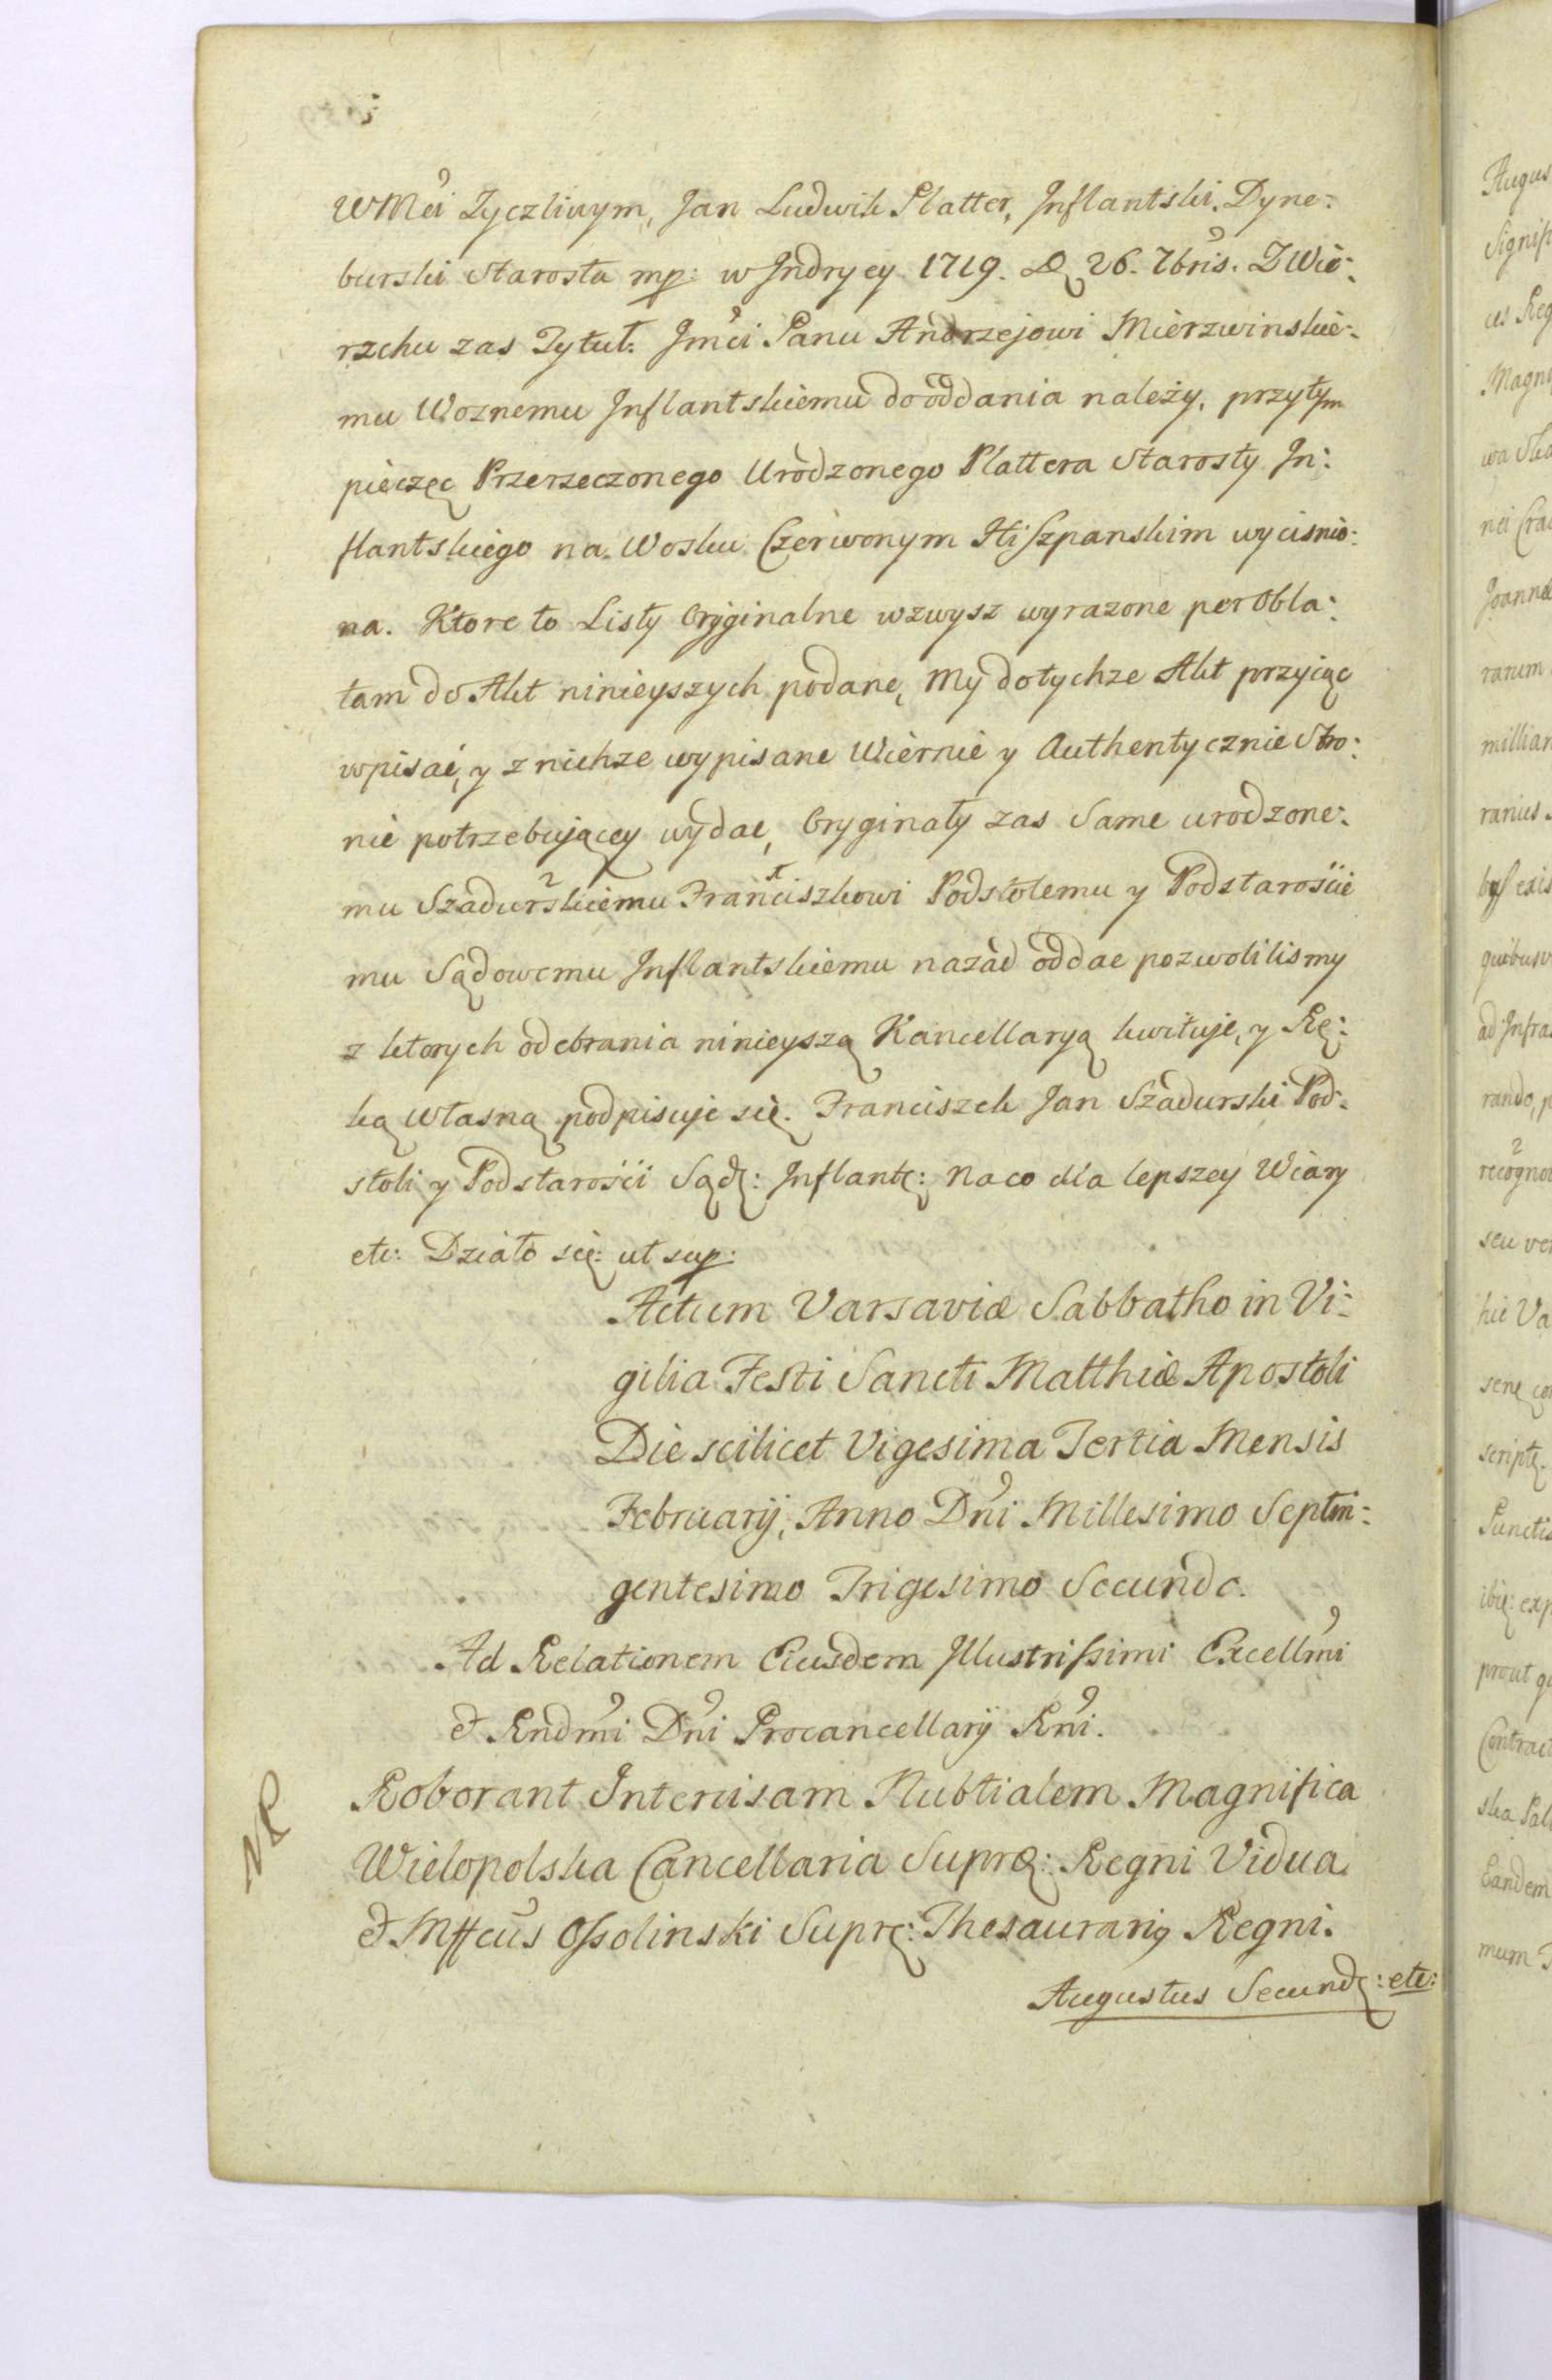 WMci Zyczliwym, Jan Ludwik Platter, Inflantski. Dyne:
burski Starosta mp: w Indrycy 1719. D 26. 7bris. Z Wie:
rzchu zas Tytuł: Jmci Panu Andrzejowi Mierzwinskie:
mu Woznemu Inflantskiemu do oddania należy, przytym
pieczęc Przerzeczonego Urodzonego Plattera Starosty In:
flantskiego na Wosku Czerwonym Hiszpanskim wycisnio:
na. Ktore to Listy Oryginalne wzwysz wyrazone per Obla:
tam do Akt ninieyszych podane, My do tychze Akt przyiąc
wpisać, y z nichze wypisane Wiernie y Authentycznie Stro:
nie potrzebującey wydac, Oryginały zas Same urodzone:
mu Szadurskiemu Franciszkowi Podstolemu y Podstaroście
mu Sądowemu Inflantskiemu nazad oddac pozwolilismy
z ktorych odebrania ninieyszą Kancellaryą kwituje, y Rę:
ką własną podpisuje się. Franciszek Jan Szadurski Pod:
stoli y Podstarości Sąd: Inflant: Na co dla lepszey Wiary
etc: Działo się: ut sup:
Actum Varsaviæ Sabbatho in Vi:
gilia Festi Sancti Matthiæ Apostoli
Die scilicet Vigesima Tertia Mensis
Februarij, Anno Dni Millesimo Septin:
gentesimo Trigesimo Secundo.
Ad Relationem Eiusdem Illustrissimi Excellmi
et Rndmi Dni Procancellarij Rni.
NR
Roborant Intercisam Nubtialem Magnifica
Wielopolska Cancellaria Supræ: Regni Vidua
et Mffcus Ossolinski Supr: Thesaurarig Regni.
Augustus Secund: etc: